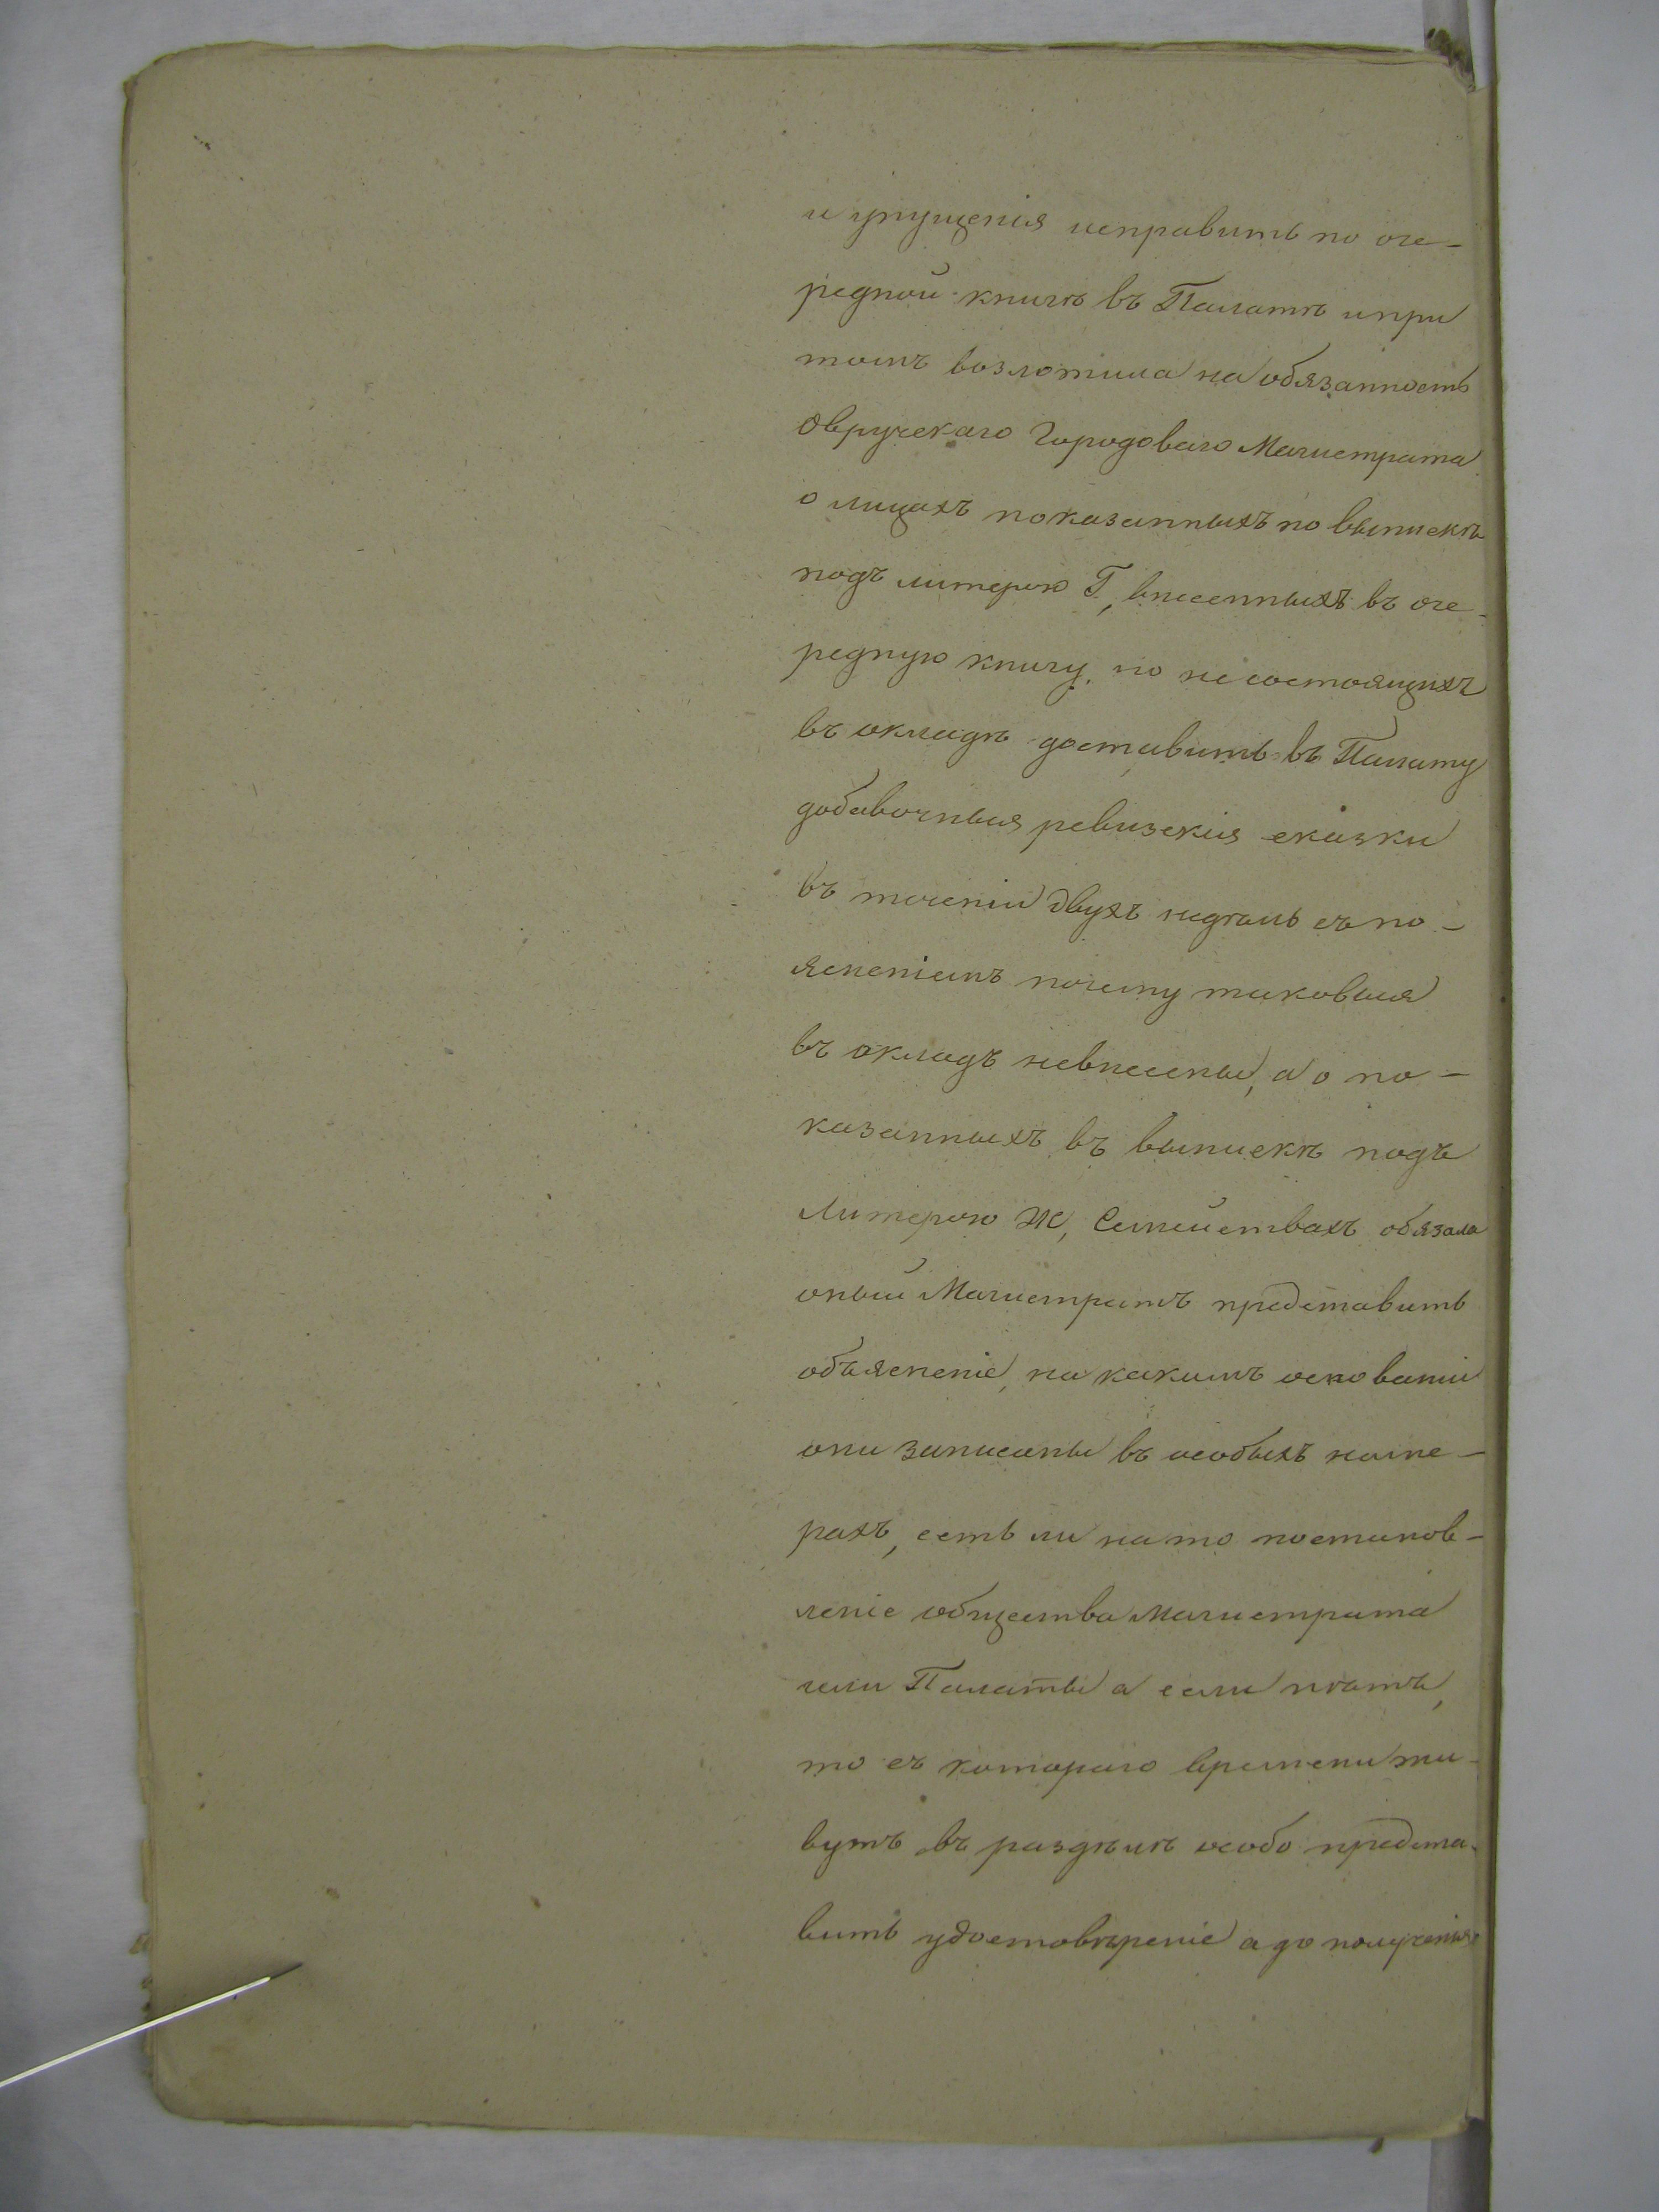 и упущенія исправить по оче-
редной книгѣ въ Палатѣ и при
томъ возложила на обязанность
Овручскаго Городоваго Магистрата
о лицахъ показанныхъ по выпискѣ
подъ литерою Г, внесенныхъ въ оче-
редную книгу, но не состоящихъ
въ окладѣ доставить въ Палату
добавочныя ревизскія сказки
въ теченіи двухъ недѣль съ по-
ясненіемъ почему таковыя
въ окладъ невнесены, а о по-
казанныхъ въ выпискѣ подъ
Литерою Ж, Семействахъ обязала
оный Магистратъ представить
объясненіе, на какомъ основаніи
они записаны въ особыхъ номе-
рахъ, есть ли на то постанов-
леніе общества Магистрата
или Палаты а если нѣтъ,
то съ котораго времени жи-
вутъ въ раздѣлѣ особо предста-
вить удостовѣреніе а до полученія